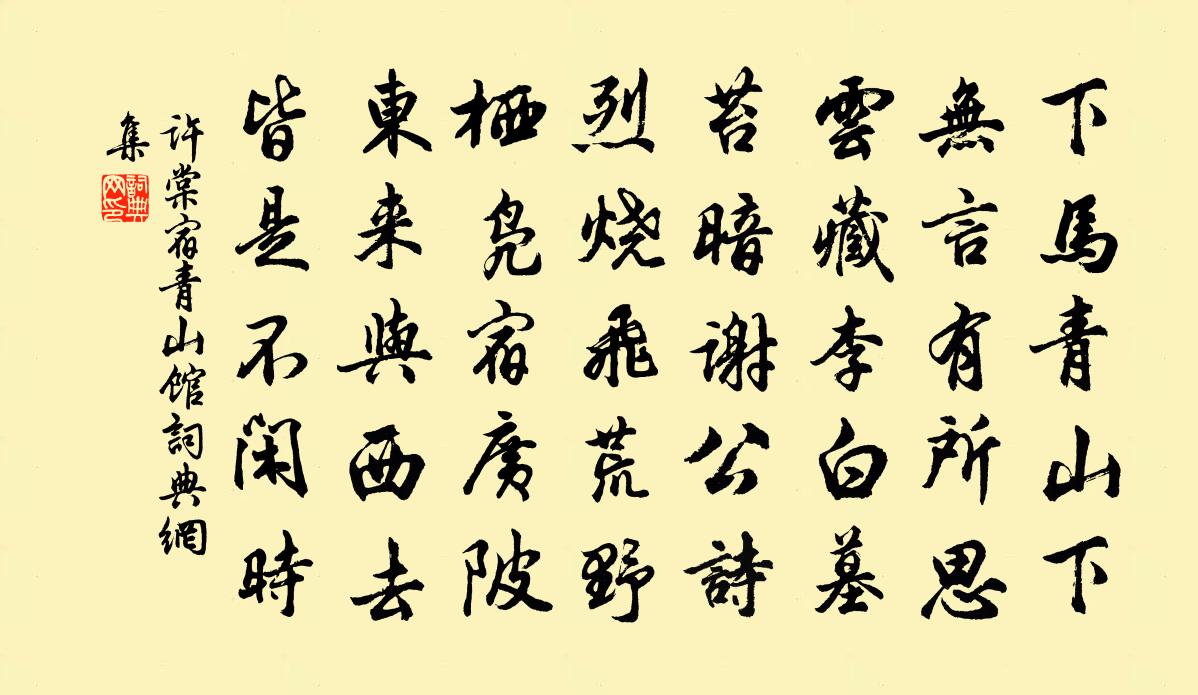 下馬青山下
無言有所思
雲藏李白墓
苔暗謝公詩
烈烧飛荒野
栖凫宿廣陂
東来與西去
皆是不閑時
许棠宿青山馆詞典網
集
詞典網印